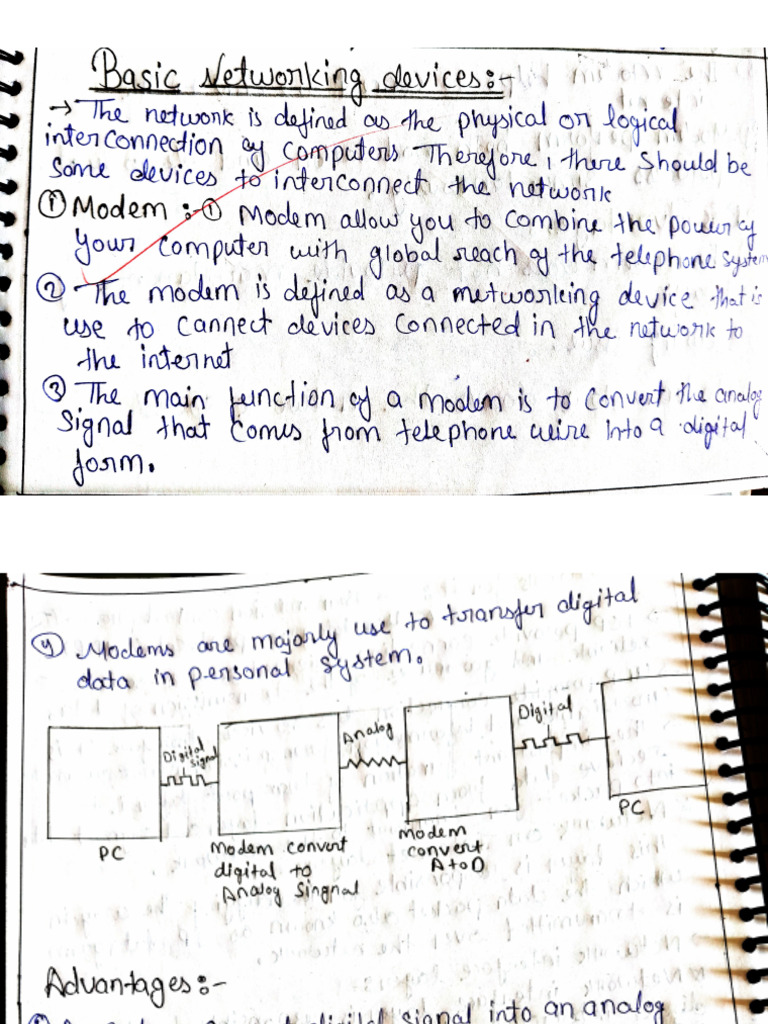 Basic Networking devices:-
→ The network is defined as the physical or logical
interconnection of computers. Therefore, there should be
some devices to interconnect the network
① Modem :- ① Modem allow you to combine the power of
your computer with global reach of the telephone system
② The modem is defined as a networking device that is
use to cannect devices connected in the network to
the internet
③ The main function of a modem is to convert the analog
signal that comes from telephone wire into a digital
form.
④ Modems are majorly use to transfer digital
data in personal system.
Digital signal
Analog
Digital
PC
Modem convert
digital to
Analog Singnal
modem
convert
A to D
PC
Advantages:-
digital signal into an analog